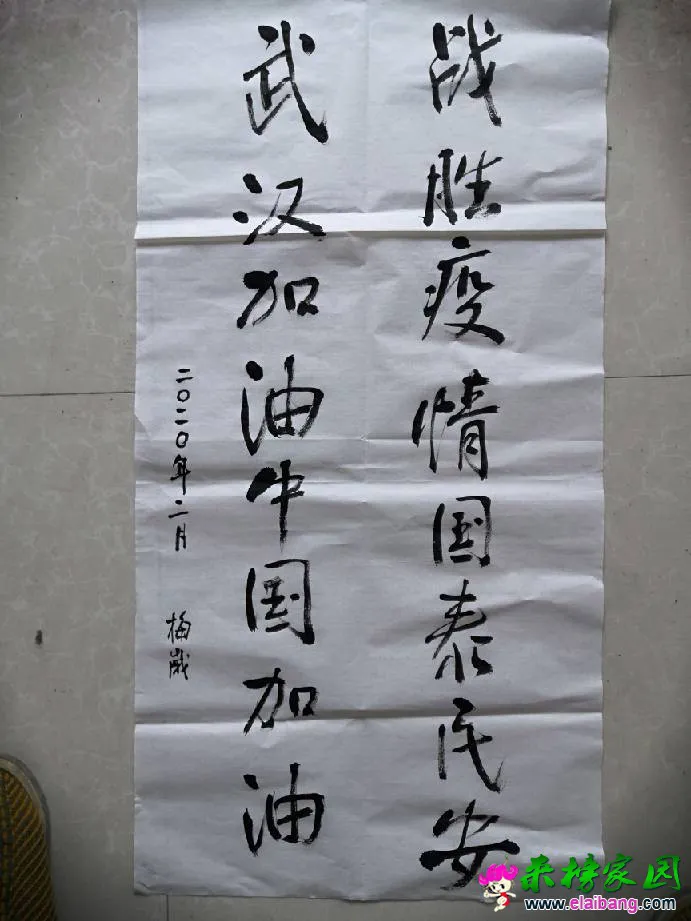 战胜疫情国泰民安
武汉加油中国加油
二〇二〇年二月
梅岁
来榜家园
www.elaibang.com